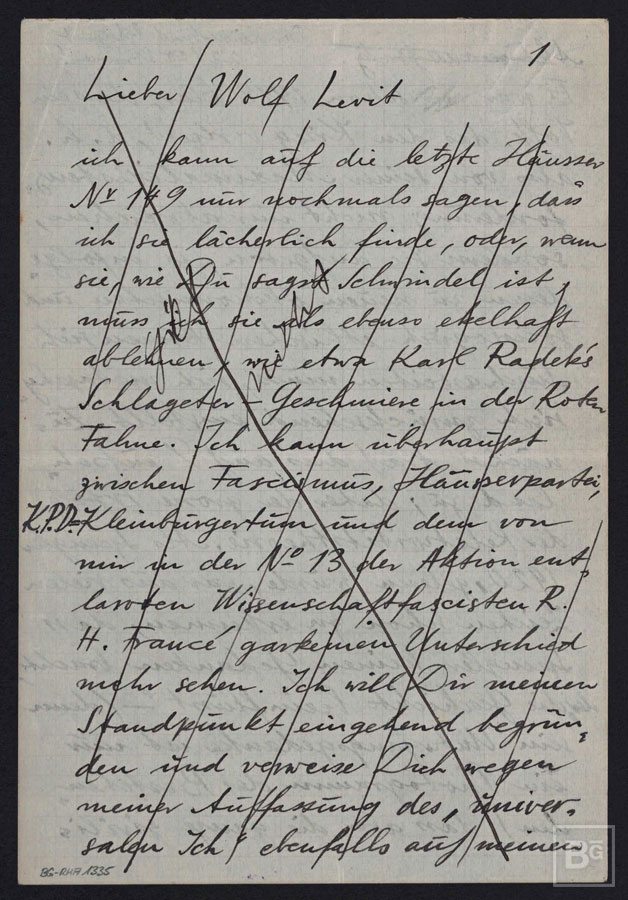 1
Lieber Wolf Levit
ich kann auf die letzte Häusser
Nr 149 nur nochmals sagen, dass
ich sie lächerlich finde, oder, wenn
sie, wie Du sagst Schwindel ist,
muss ich sie als ebenso ekelhaft
ablehnen, wie etwa Karl Radek's
Schlageter-Geschmiere in der Roten
Fahne. Ich kann überhaupt
zwischen Fascismus, Häusserpartei,
K.P.D.=Kleinbürgertum und dem von
mir in der No 13 der Aktion ent„
larvten Wissenschaftfascisten R.
H. Francé garkeinen Unterschied
mehr sehen. Ich will Dir meinen
Standpunkt eingehend begrün„
den und verweise Dich wegen
meiner Auffassung des „univer„
salen Ich“ ebenfalls auf meinen
BG-RHA 1335
BG